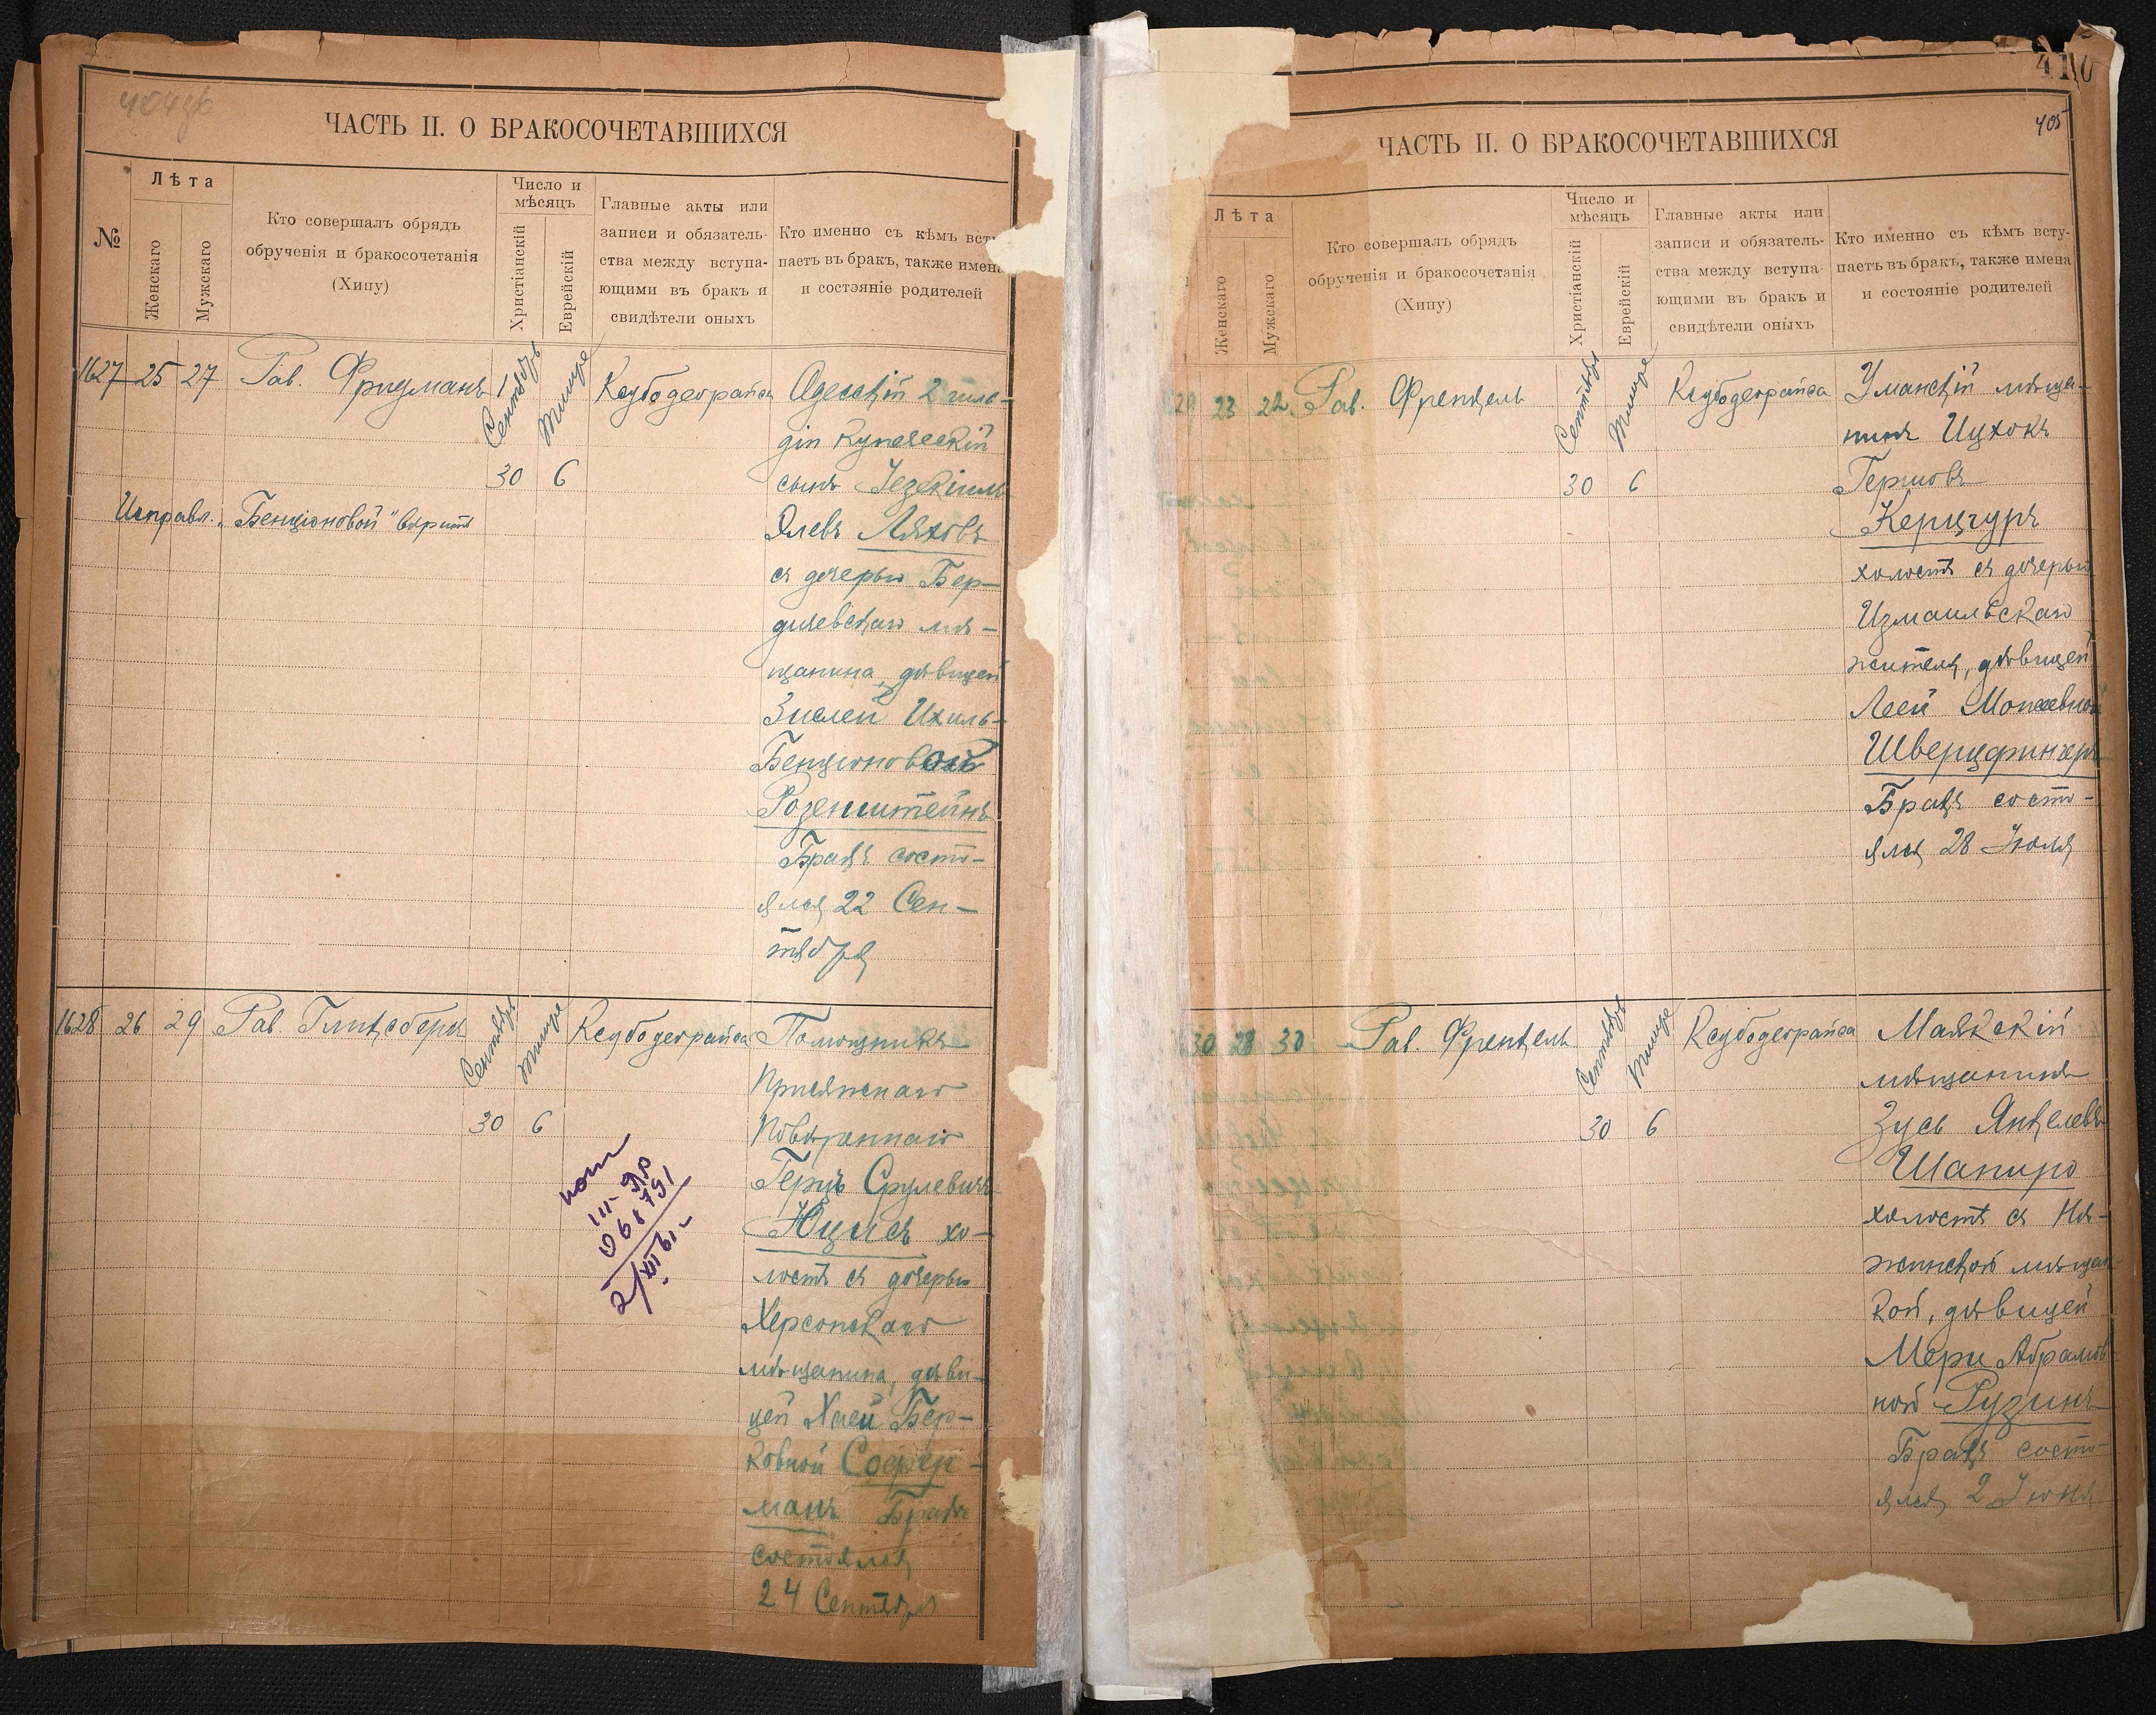 404об
ЧАСТЬ II. О БРАКОСОЧЕТАВШИХСЯ
№
Лѣта
Женскаго
Мужскаго
Кто совершалъ обрядъ
обрученія и бракосочетанія
(Хипу)
Число и
мѣсяцъ
Христіанскій
Еврейскій
Главные акты или
записи и обязатель-
ства между вступа-
ющими въ бракъ и
свидѣтели оныхъ
Кто именно съ кѣмъ всту
паетъ въ бракъ, также имена
и состэяніе родителей
1627 25 27 Рав. Фридманъ
Сентябрь
Тишре
30 6
Ксубодеорайса
Одесскій 2 гиль-
діи купеческій
сынъ Іезекіиль
Элевъ Ляховъ
съ дочерью Бер-
дичевскаго мѣ-
щанина, дѣвицей
Зислей Ихиль-
Бенціоновой
Розенштейнъ
Бракъ состо-
ялся 22 Сен-
тября
Исправл. „Бенціоновой" вѣрить
1628 26 29 Рав. Гликсбергъ
Сентябрь
Тишре
30 6
Ксубодеорайса
Помощникъ
Присяжнаго
Повѣреннаго
Герцъ Срулевичъ
Юцисъ хо-
лостъ съ дочерью
Херсонскаго
мѣщанина, дѣви-
цей Хаей Бер-
ковной Софер-
манъ Бракъ
состоялся
24 Сентября
410
405
ЧАСТЬ II. О БРАКОСОЧЕТАВШИХСЯ
Лѣта
Женскаго
Мужскаго
Кто совершалъ обрядъ
обрученія и бракосочетанія
(Хипу)
Число и
мѣсяцъ
Христіанскій
Еврейскій
Главные акты или
записи и обязатель-
ства между вступа-
ющими въ бракъ и
свидѣтели оныхъ
Кто именно съ кѣмъ всту-
паетъ въ бракъ, также имена
и состояніе родителей
29 23 22 Рав. Френкель
Сентябрь
Тишре
30 6
Ксубодеорайса
Уманскій мѣща-
нинъ Ицхокъ
Гершовъ
Керцгуръ
холостъ съ дочерью
Измаильскаго
жителя, дѣвицей
Леей Мошковной
Шверцфингеръ
Бракъ состо-
ялся 28 Іюля
30 28 30 Рав. Френкель
Сентябрь
Тишре
30 6
Ксубодеорайса
Маякскій
мѣщанинъ
Зусь Янкелевъ
Шапиро
холостъ съ Нѣ-
жинской мѣщан
кой, дѣвицей
Мери Абрамов
ной Рузинъ
Бракъ состо-
ялся 2 Іюня